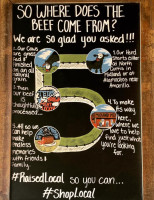 SO WHERE DOES THE
BEEF COME FROM?
We are so glad you asked!!!
1. Our Herd
Starts either
at North
in
Midland or at
2. Our Cows
are grass
fed &
finished
on an all
natural
3. Then our
beef is
thoughtfully
processed
4. To make
its way
here,
where we
love to help
find just what
you're looking
for.
5. All so we
can help
make
meatless
memories
with friends &
family.
#RaisedLocal so you can...
#ShopLocal